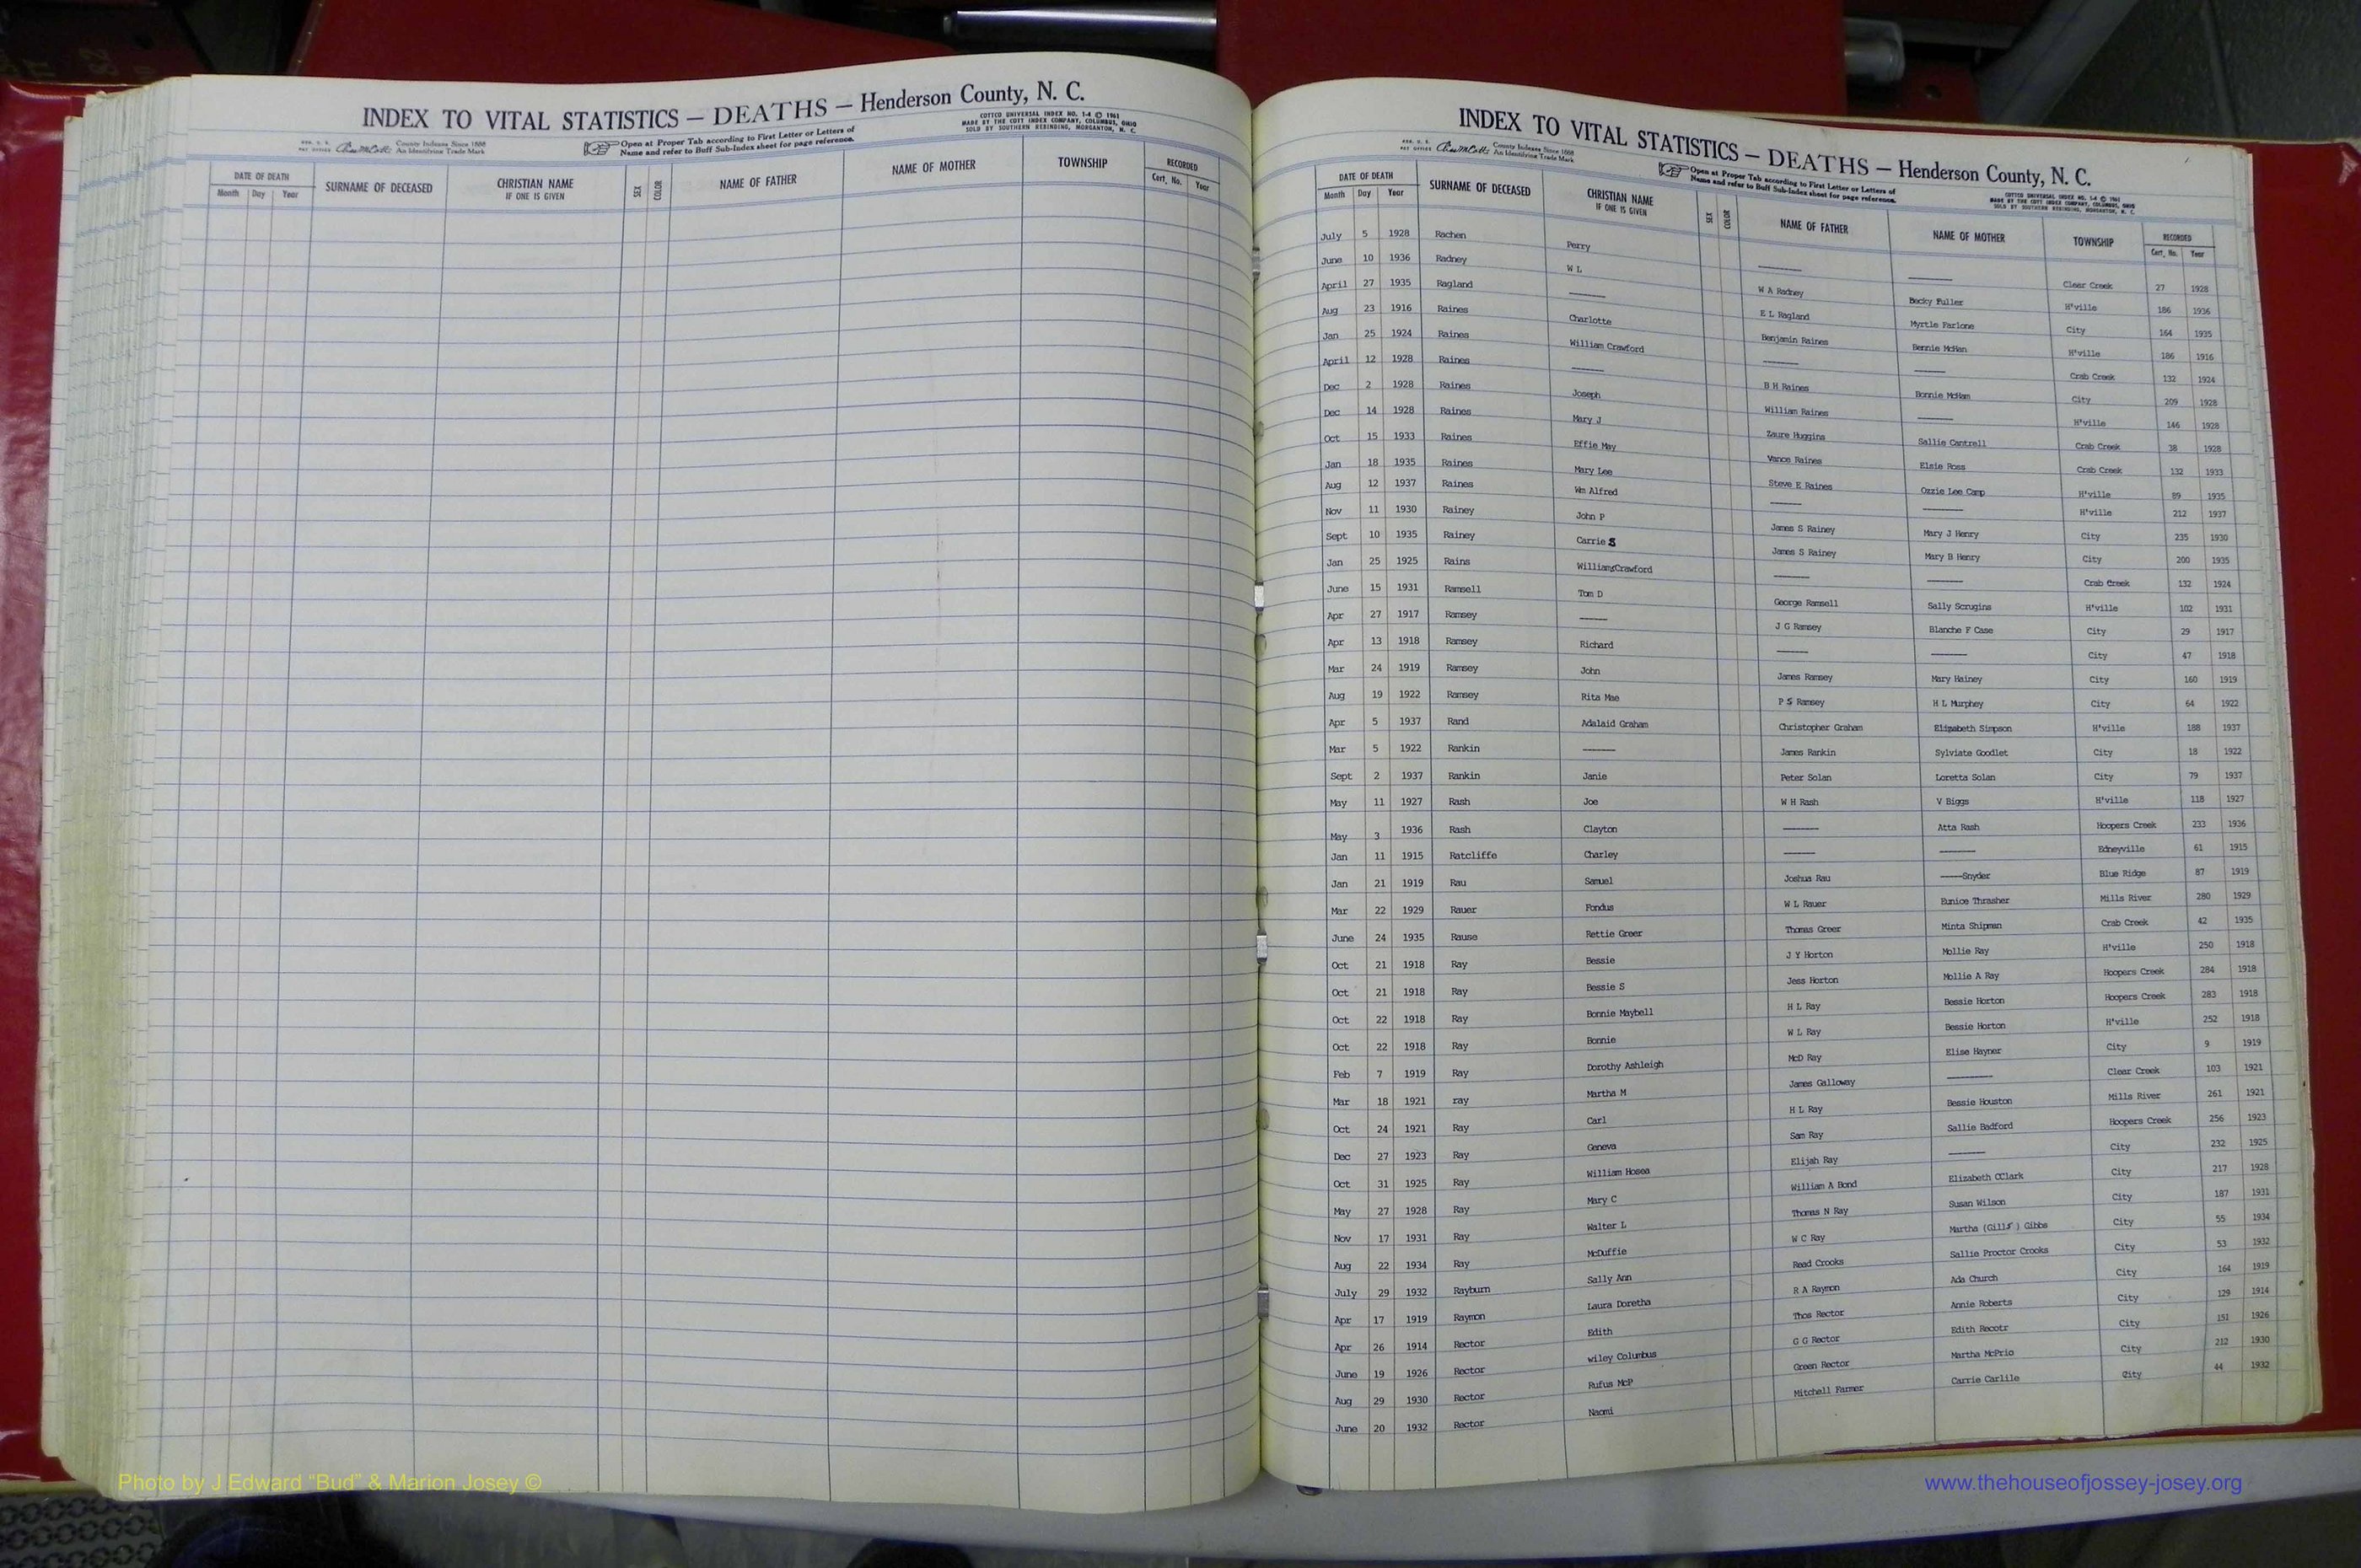 INDEX TO VITAL STATISTICS — DEATHS — Henderson County, N. C.
County Indexes Since 1888
An Identifying Trade Mark
Open at Proper Tab according to First Letter or Letters of
Name and refer to Buff Sub-Index sheet for page reference.
COTTCO UNIVERSAL INDEX NO. 1-4 © 1961
MADE BY THE COTT INDEX COMPANY, COLUMBUS, OHIO
SOLD BY SOUTHERN REBINDING, MORGANTON, N. C.
DATE OF DEATH SURNAME OF DECEASED CHRISTIAN NAME IF ONE IS GIVEN SEX COLOR NAME OF FATHER NAME OF MOTHER TOWNSHIP RECORDED
Month Day Year Cert. No. Year
INDEX TO VITAL STATISTICS — DEATHS — Henderson County, N. C.
County Indexes Since 1888
An Identifying Trade Mark
Open at Proper Tab according to First Letter or Letters of
Name and refer to Buff Sub-Index sheet for page reference.
COTTCO UNIVERSAL INDEX NO. 1-4 © 1961
MADE BY THE COTT INDEX COMPANY, COLUMBUS, OHIO
SOLD BY SOUTHERN REBINDING, MORGANTON, N. C.
DATE OF DEATH SURNAME OF DECEASED CHRISTIAN NAME IF ONE IS GIVEN SEX COLOR NAME OF FATHER NAME OF MOTHER TOWNSHIP RECORDED
Month Day Year Cert. No. Year
July 5 1928 Rachen Perry —— —— Clear Creek 27 1928
June 10 1936 Radney W L W A Radney Becky Fuller H'ville 186 1936
April 27 1935 Ragland —— E L Ragland Myrtle Farlone City 164 1935
Aug 23 1916 Raines Charlotte Benjamin Raines Bennie McHan H'ville 186 1916
Jan 25 1924 Raines William Crawford —— —— Crab Creek 132 1924
April 12 1928 Raines —— B H Raines Bonnie McHam City 209 1928
Dec 2 1928 Raines Joseph William Raines —— H'ville 146 1928
Dec 14 1928 Raines Mary J Zaure Huggins Sallie Cantrell Crab Creek 38 1928
Oct 15 1933 Raines Effie May Vance Raines Elsie Ross Crab Creek 132 1933
Jan 18 1935 Raines Mary Lee Steve E Raines Ozzie Lee Camp H'ville 89 1935
Aug 12 1937 Raines Wm Alfred —— —— H'ville 212 1937
Nov 11 1930 Rainey John P James S Rainey Mary J Henry City 235 1930
Sept 10 1935 Rainey Carrie S James S Rainey Mary B Henry City 200 1935
Jan 25 1925 Rains William Crawford —— —— Crab Creek 132 1924
June 15 1931 Ramsell Tom D George Ramsell Sally Scrugins H'ville 102 1931
Apr 27 1917 Ramsey —— J G Ramsey Blanche F Case City 29 1917
Apr 13 1918 Ramsey Richard —— —— City 47 1918
Mar 24 1919 Ramsey John James Ramsey Mary Hainey City 160 1919
Aug 19 1922 Ramsey Rita Mae P S Ramsey H L Murphey City 64 1922
Apr 5 1937 Rand Adalaid Graham Christopher Graham Elizabeth Simpson H'ville 188 1937
Mar 5 1922 Rankin —— James Rankin Sylviate Goodlet City 18 1922
Sept 2 1937 Rankin Janie Peter Solan Loretta Solan City 79 1937
May 11 1927 Rash Joe W H Rash V Biggs H'ville 118 1927
May 3 1936 Rash Clayton —— Atta Rash Hoopers Creek 233 1936
Jan 11 1915 Ratcliffe Charley —— —— Edneyville 61 1915
Jan 21 1919 Rau Samuel Joshua Rau ——Snyder Blue Ridge 87 1919
Mar 22 1929 Rauer Fondus W L Rauer Eunice Thrasher Mills River 280 1929
June 24 1935 Rause Rettie Greer Thomas Greer Minta Shipman Crab Creek 42 1935
Oct 21 1918 Ray Bessie J Y Horton Mollie Ray H'ville 250 1918
Oct 21 1918 Ray Bessie S Jess Horton Mollie A Ray Hoopers Creek 284 1918
Oct 22 1918 Ray Bonnie Maybell H L Ray Bessie Horton Hoopers Creek 283 1918
Oct 22 1918 Ray Bonnie W L Ray Bessie Horton H'ville 252 1918
Feb 7 1919 Ray Dorothy Ashleigh McD Ray Elise Hayner City 9 1919
Mar 18 1921 ray Martha M James Galloway —— Clear Creek 103 1921
Oct 24 1921 Ray Carl H L Ray Bessie Houston Mills River 261 1921
Dec 27 1923 Ray Geneva Sam Ray Sallie Badford Hoopers Creek 256 1923
Oct 31 1925 Ray William Hosea Elijah Ray —— City 232 1925
May 27 1928 Ray Mary C William A Bond Elizabeth OClark City 217 1928
Nov 17 1931 Ray Walter L Thomas N Ray Susan Wilson City 187 1931
Aug 22 1934 Ray McDuffie W C Ray Martha (Gills) Gibbs City 55 1934
July 29 1932 Rayburn Sally Ann Read Crooks Sallie Proctor Crooks City 53 1932
Apr 17 1919 Raymon Laura Doretha R A Raymon Ada Church City 164 1919
Apr 26 1914 Rector Edith Thos Rector Annie Roberts City 129 1914
June 19 1926 Rector wiley Columbus G G Rector Edith Recotr City 151 1926
Aug 29 1930 Rector Rufus McP Green Rector Martha McPrio City 212 1930
June 20 1932 Rector Naomi Mitchell Farmer Carrie Carlile City 44 1932
Photo by J Edward "Bud" & Marion Josey ©
www.thehouseofjossey-josey.org